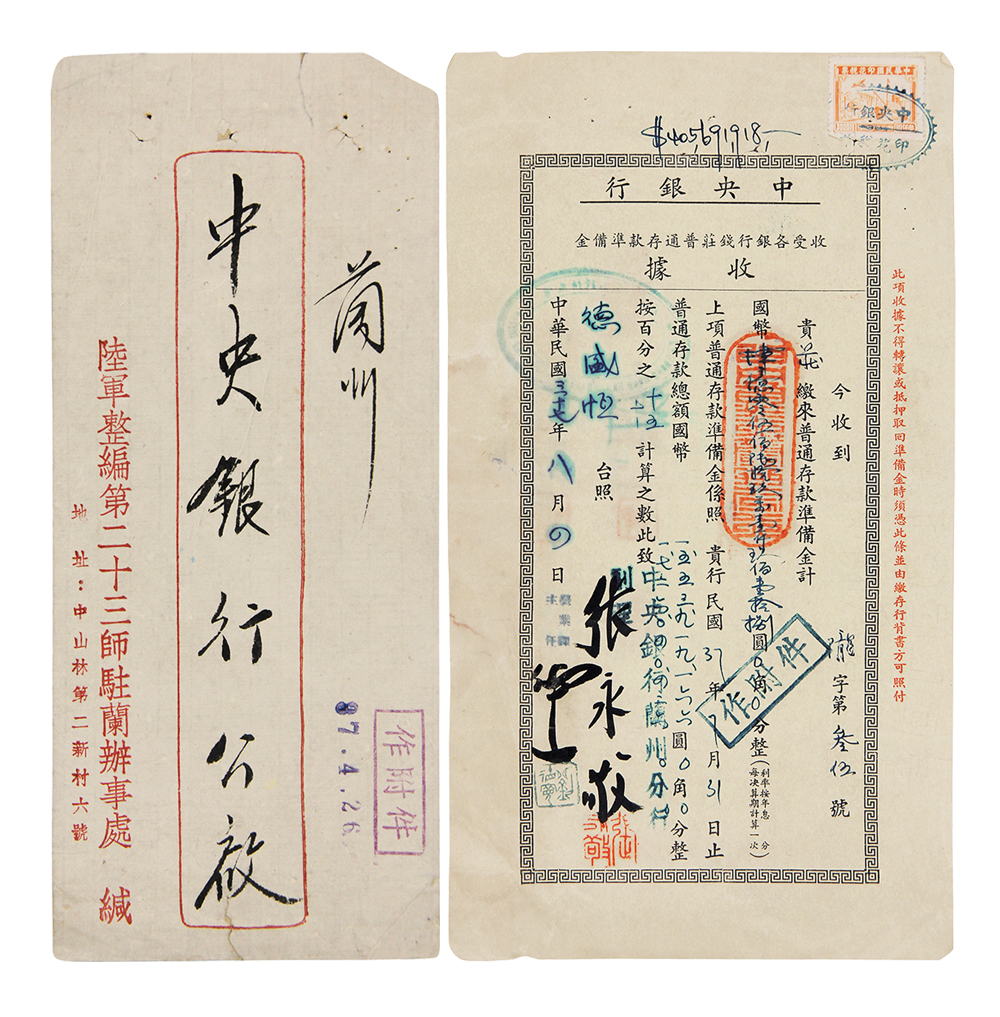 蘭州
中央銀行公啟
陸軍整編第二十三師駐蘭辦事處 緘
地址：中山林第二新村六號
作附件
37.4.26
$405,691,918,-
中華民國印花稅票
中央銀行
印花
中央銀行
收受各銀行錢莊普通存款準備金
收據
此項收據不得轉讓或抵押取回準備金時須憑此條並由繳存行背書方可照付
隴字第叁伍號
今收到
貴莊繳來普通存款準備金計
國幣肆億零伍佰陸拾玖萬壹仟玖佰壹拾捌圓0角0分整（利率按年息 分每決算期計算一次）
上項普通存款準備金係照 貴行民國37年7月31日止
普通存款總額國幣 圓0角0分整
按百分之十五計算之數此致
德盛恆 台照
中華民國三七年八月四日
中央銀行蘭州分行
張永敬
營業課
主任
作附件